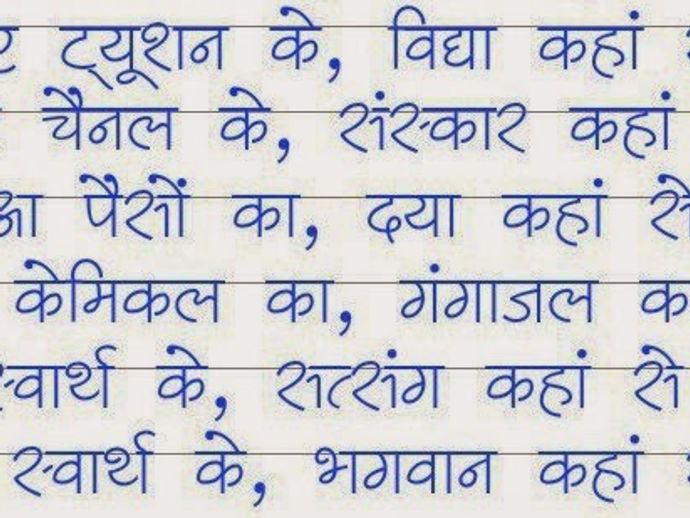 ट्यूशन के, विद्या कहां
चैनल के, संस्कार कहां
पैसों का, दया कहां
केमिकल का, गंगाजल
स्वार्थ के, सत्संग कहां से
स्वार्थ के, भगवान कहां